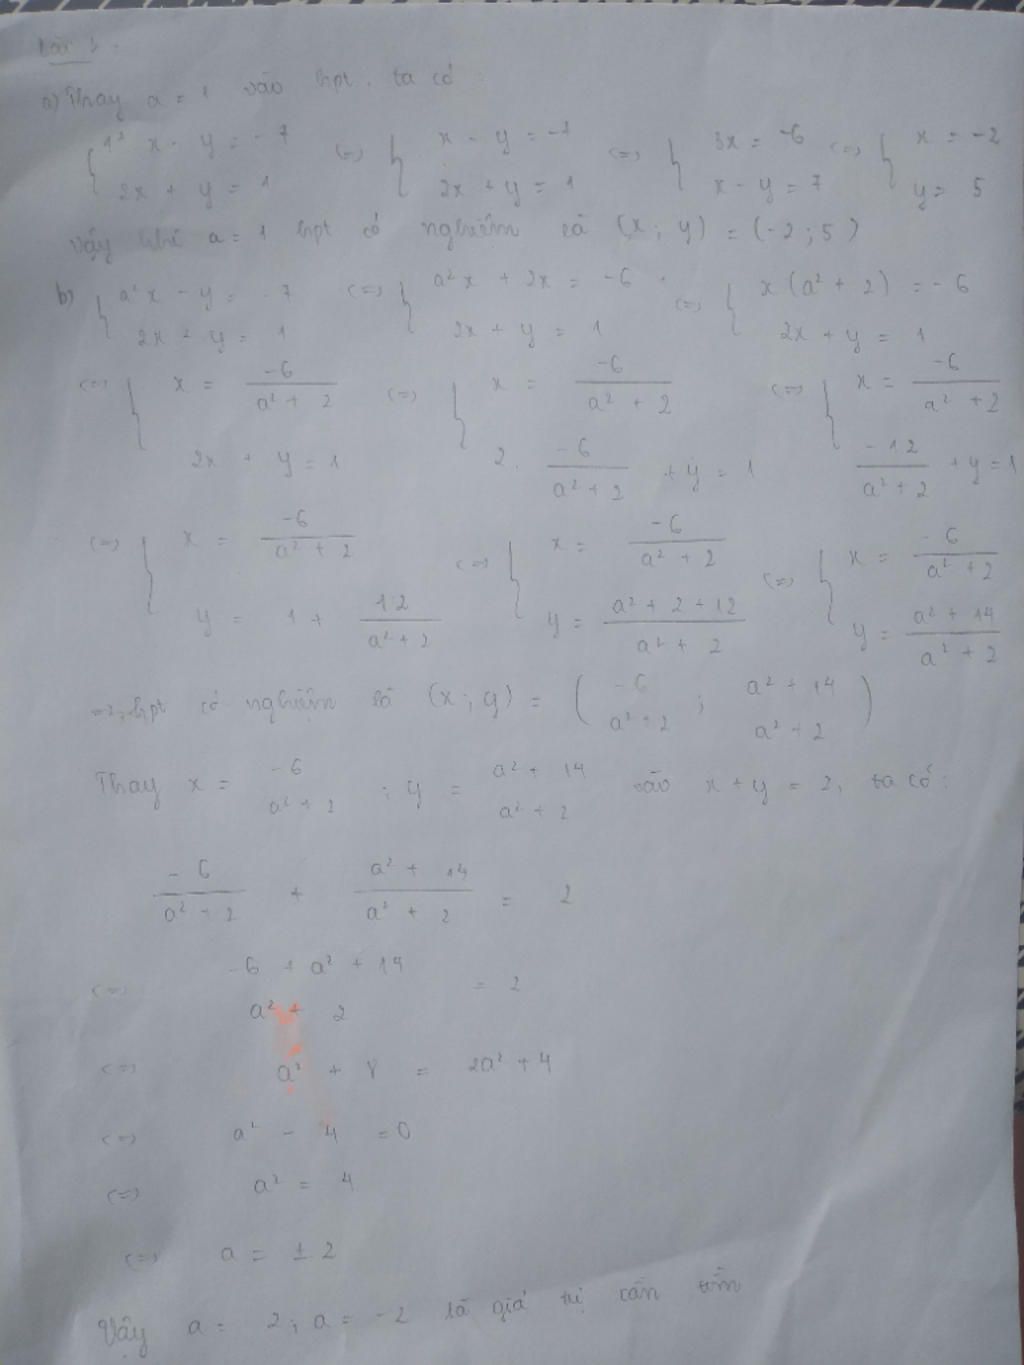 Bài 3:
a) Thay a = 1 vào hpt, ta có:
{ 1² x - y = -7 (=) { x - y = -7 (=) { 3x = -6 (=) { x = -2
2x + y = 1 2x + y = 1 x - y = 7 y = 5
Vậy khi a = 1 hpt có nghiệm là (x; y) = (-2; 5)
b) { a²x - y = -7 (=) { a²x + 2x = -6 (=) { x(a² + 2) = -6
2x + y = 1 2x + y = 1 2x + y = 1
(=) { x = -6 / (a² + 2) (=) { x = -6 / (a² + 2) (=) { x = -6 / (a² + 2)
2x + y = 1 2. -6 / (a² + 2) + y = 1 -12 / (a² + 2) + y = 1
(=) { x = -6 / (a² + 2) (=) { x = -6 / (a² + 2) (=) { x = -6 / (a² + 2)
y = 1 + 12 / (a² + 2) y = (a² + 2 + 12) / (a² + 2) y = (a² + 14) / (a² + 2)
=> hpt có nghiệm là (x; y) = ( -6 / (a² + 2) ; (a² + 14) / (a² + 2) )
Thay x = -6 / (a² + 2) ; y = (a² + 14) / (a² + 2) vào x + y = 2, ta có:
-6 / (a² + 2) + (a² + 14) / (a² + 2) = 2
(=) (-6 + a² + 14) / (a² + 2) = 2
(=) a² + 8 = 2a² + 4
(=) a² - 4 = 0
(=) a² = 4
(=) a = ± 2
Vậy a = 2; a = -2 là giá trị cần tìm